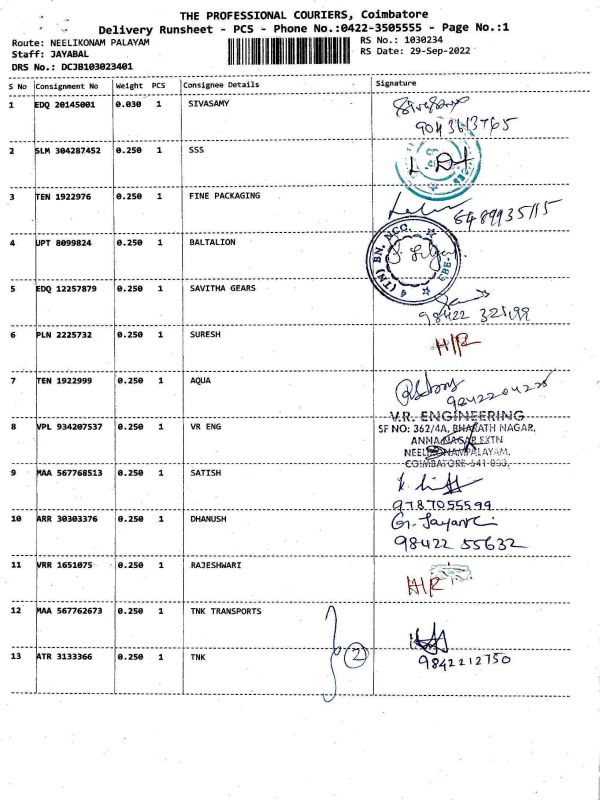 THE PROFESSIONAL COURIERS, Coimbatore
Delivery Runsheet - PCS - Phone No.:0422-3505555 - Page No.:1
Route: NEELIKONAM PALAYAM
RS No.: 1030234
Staff: JAYABAL
RS Date: 29-Sep-2022
DRS No.: DCJB103023401
S No Consignment No Weight PCS Consignee Details Signature
1 EDQ 20145001 0.030 1 SIVASAMY
9043613765
2 SLM 304287452 0.250 1 SSS
3 TEN 1922976 0.250 1 FINE PACKAGING
4 UPT 8099824 0.250 1 BALTALION
(TN) BN. NCC.
5 EDQ 12257879 0.250 1 SAVITHA GEARS
98422 32199
6 PLN 2225732 0.250 1 SURESH H/R
7 TEN 1922999 0.250 1 AQUA
9842204225
8 VPL 934207537 0.250 1 VR ENG
V.R. ENGINEERING
SF NO: 362/4A, BHARATH NAGAR,
ANNA NAGAR EXTN
NEELIKONAMPALAYAM,
COIMBATORE-641 033.
9 MAA 567768513 0.250 1 SATISH
9787055599
10 ARR 30303376 0.250 1 DHANUSH
G. Jayanthi
98422 55632
11 VRR 1651075 0.250 1 RAJESHWARI H/R
12 MAA 567762673 0.250 1 TNK TRANSPORTS
13 ATR 3133366 0.250 1 TNK 2
9842212750